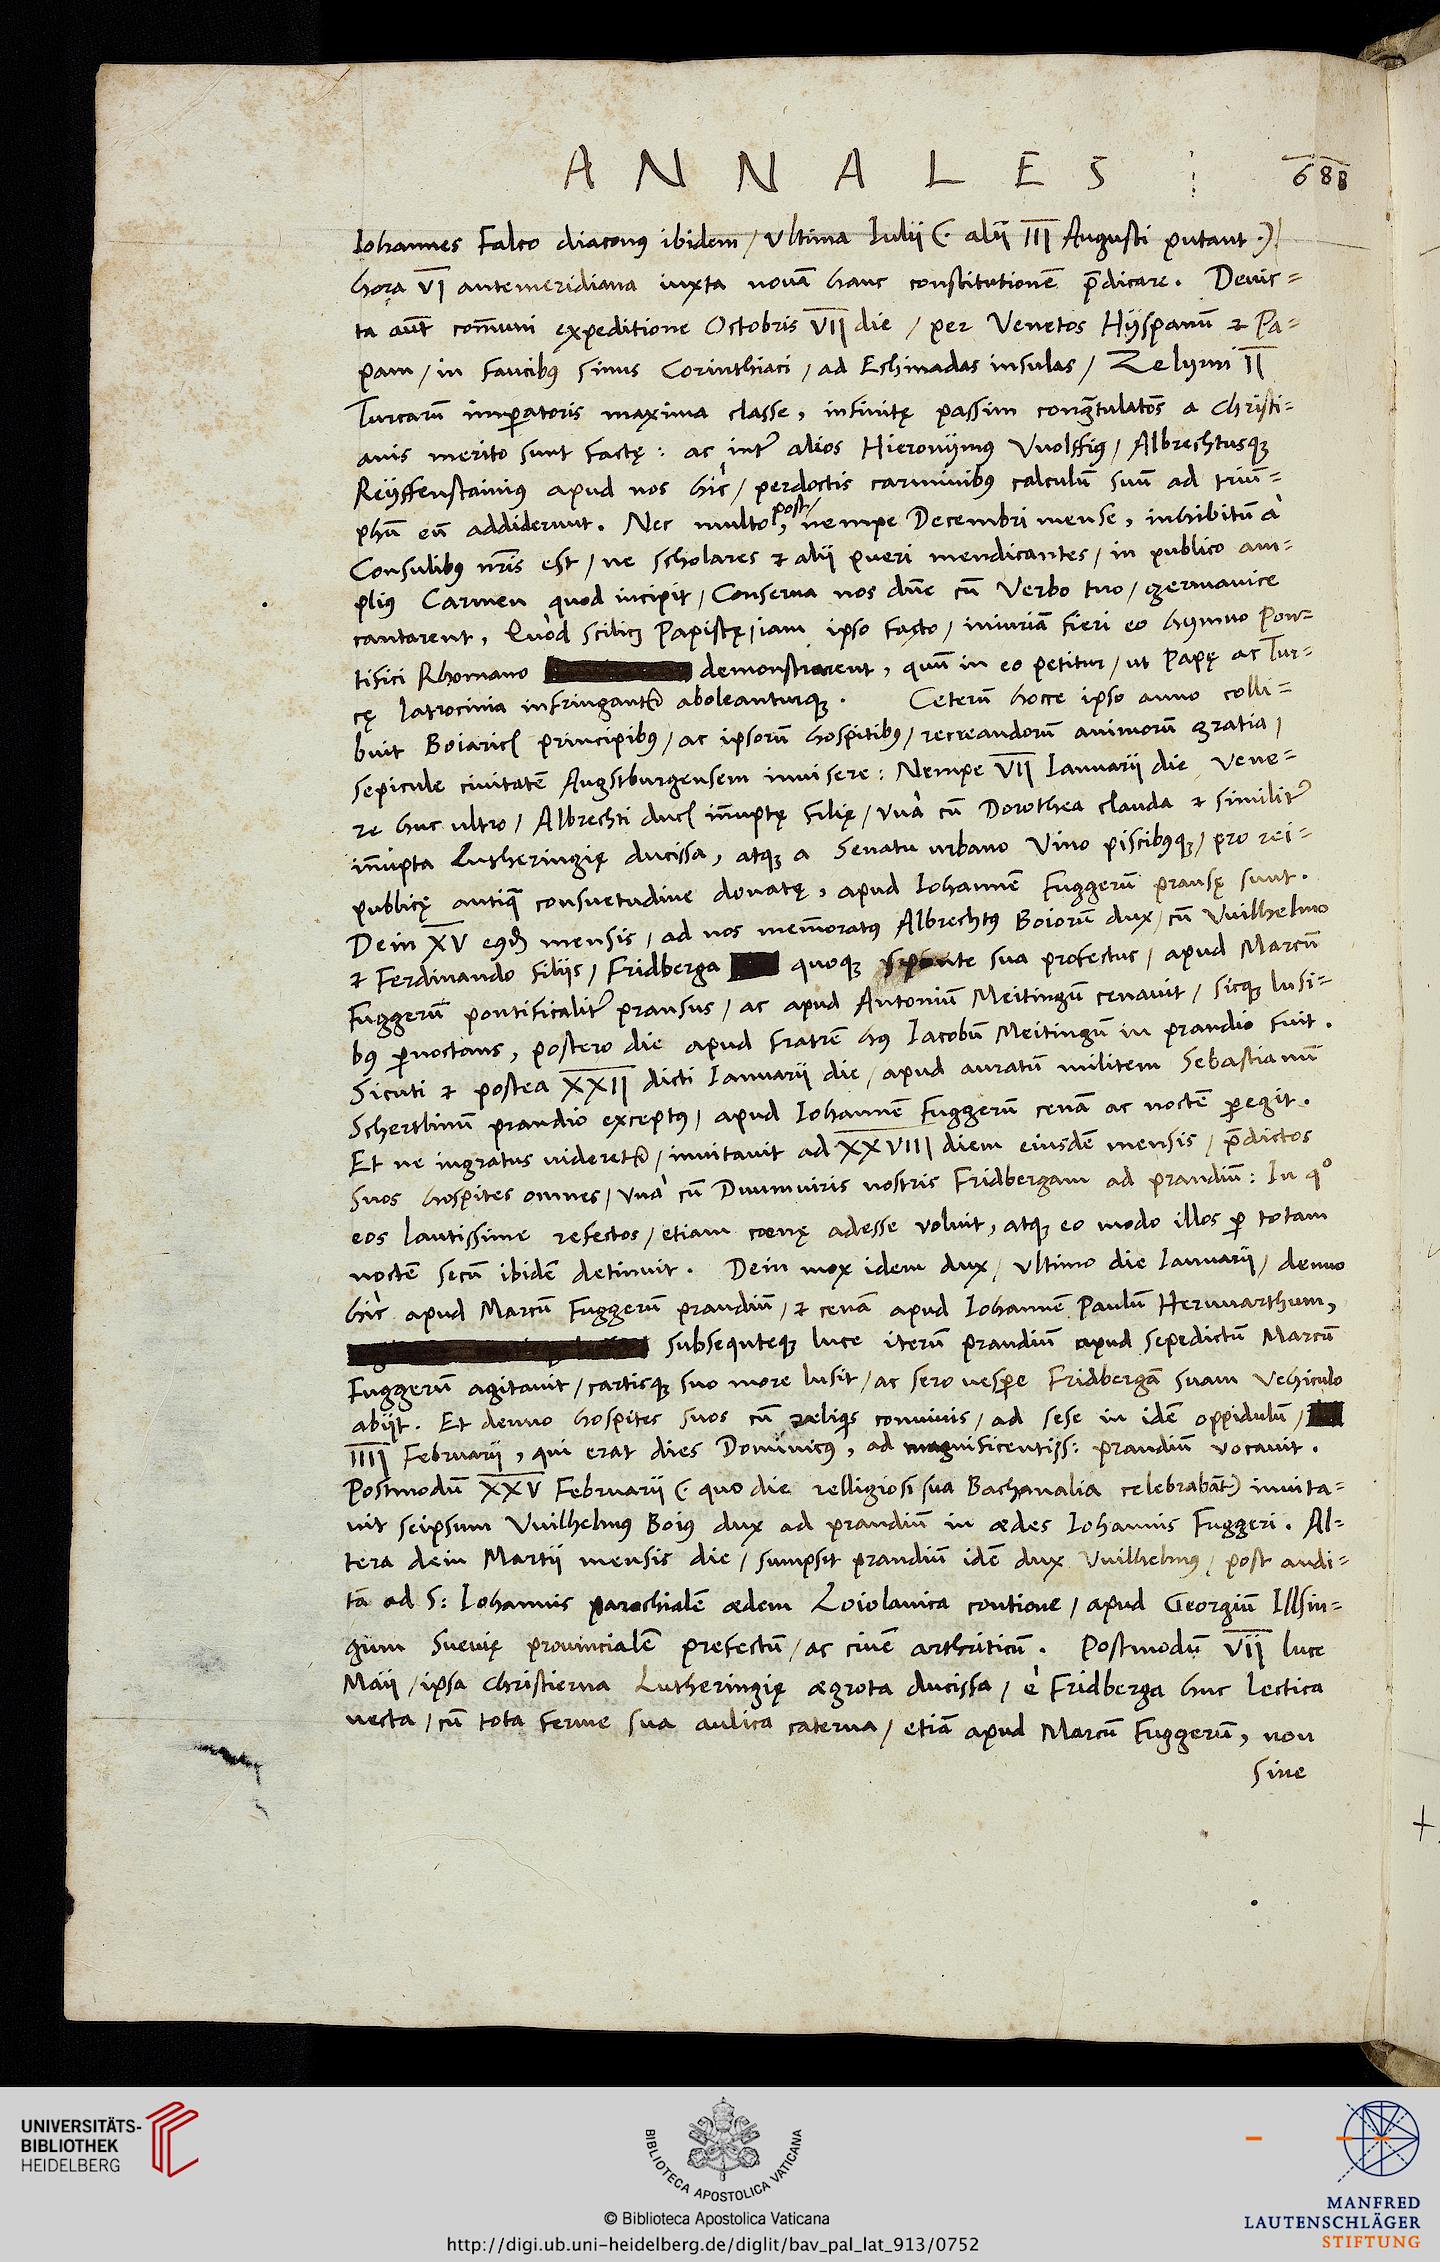 ANNALES
688
Iohannes Falco diaconus ibidem / ultima Iulii (· alii III Augusti putant ·)
hora VI antemeridiana iuxta novā hanc constitutionē p̄dicare. Devic-
ta aut̄ com̄uni expeditione Octobris VII die / per Venetos Hÿspanū & Pa-
pam / in faucibus sinus Corinthiaci / ad Eshinadas insulas / Zelymi II
Turcarū imperatoris maxima classe, infinitę passim congratulatōs a christi-
anis merito sunt factę: ac inter alios Hieronÿmus Wolffius / Albrechtusq;
Reÿffenstainius apud nos hìc / perdoctis carminibus calculū suū ad triū-
phū eū addiderunt. Nec multo post, nempe Decembri mense, inhibitū à
Consulibus nr̄is est / ne scholares & alii pueri mendicantes / in publico am-
plius Carmen quod incipit / Conserva nos dn̄e cū Verbo tuo / germanice
cantarent, Quòd scilicz Papistę / iam ipso facto / iniuriā fieri eo hymno Pon-
tifici Rhomano demonstrarent, quū in eo petitur / ut Papę ac Tur-
cę latrocinia infringantur aboleanturq;. Ceterū hocce ipso anno colli-
buit Boiaricis principibus / ac ipsorū hospitibus / recreandorū animorū gratia /
sepicule civitatē Augstburgensem invisere: Nempe VII Ianuarii die vene-
re huc ultro / Albrechti ducis in̄uptę filię / unà cū Dorothea clauda & similiter
in̄upta Lutheringię ducissa, atq; a Senatu urbano Vino piscibusq; / pro rei-
publicę antiqua consuetudine donatę, apud Iohannē Fuggerū pransę sunt.
Dein XV eiusdem mensis / ad nos mem̄oratus Albrechtus Boiorū dux / cū Vuilhelmo
& Ferdinando filiis / Fridberga quoq; sponte sua profectus / apud Marcū
Fuggerū pontificaliter pransus / ac apud Antoniū Meitingū cenavit / sicq; lusi-
bus pernoctans, postero die apud fratrē hus Iacobū Meitingū in prandio fuit.
Sicuti & postea XXII dicti Ianuarii die / apud auratū militem Sebastianū
Schertlinū prandio exceptus / apud Iohannē Fuggerū cenā ac noctē peregit.
Et ne ingratus videretur / invitavit ad XXVIII diem eiusdē mensis / p̄dictos
suos hospites omnes / unà cū Duumviris nostris Fridbergam ad prandiū: In qo
eos lautissime refectos / etiam cœnę adesse voluit, atq; eo modo illos per totam
noctē secū ibidē detinuit. Dein mox idem dux / ultimo die Ianuarii / denuo
hìc apud Marcū Fuggerū prandiū / & cenā apud Iohannē Paulū Herwarthum,
subsequteq; luce iterū prandiū apud sepedictū Marcū
Fuggerū agitavit / cartisq; suo more lusit / ac sero vespere Fridbergā suam vehiculo
abiit. Et denuo hospites suos cū reliquis convivis / ad sese in idē oppidulū /
IIII Februarii, qui erat dies Dominicus, ad magnificentiss: prandiū vocavit.
Postmodū XXV Februarii (· quo die relligiosi sua Bachanalia celebrabāt) invita-
vit seipsum Vuilhelmus Boius dux ad prandiū in ædes Iohannis Fuggeri. Al-
tera dein Martii mensis die / sumpsit prandiū idē dux Vuilhelmus / post audi-
tā ad S: Iohannis parochialē ædem Loiolanica contione / apud Georgiū Illsin-
gum Suevię provincialē prefectū / ac civē arthriticū. Postmodū VII luce
Maii / ipsa Christierna Lutheringię ægrota ducissa / è Fridberga huc lectica
vecta / cū tota ferme sua aulica caterva / etiā apud Marcū Fuggerū, non
sine
UNIVERSITÄTS-
BIBLIOTHEK
HEIDELBERG
BIBLIOTECA APOSTOLICA VATICANA
© Biblioteca Apostolica Vaticana
http://digi.ub.uni-heidelberg.de/diglit/bav_pal_lat_913/0752
MANFRED
LAUTENSCHLÄGER
STIFTUNG